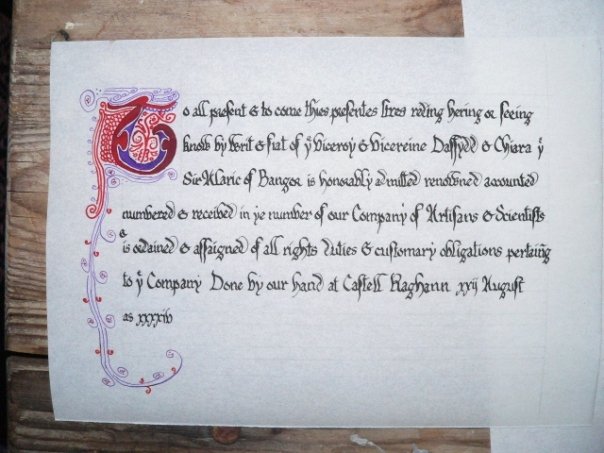 To all present & to come thies presentes ltres reding hering or seeing
know by Writ & fiat of yͤ Viceroy & Vicereine Daffydd & Chiara yͭ
Sir Alaric of Bangor is honorably admitted renowned accounted
numbered & received in ye number of our Company of Artisans & Scientists
& is ordained & assaigned of all rights duties & customary obligations pertaing
to yͤ Company Done by our hand at Castell Raghann xxij August
as xxxxiv